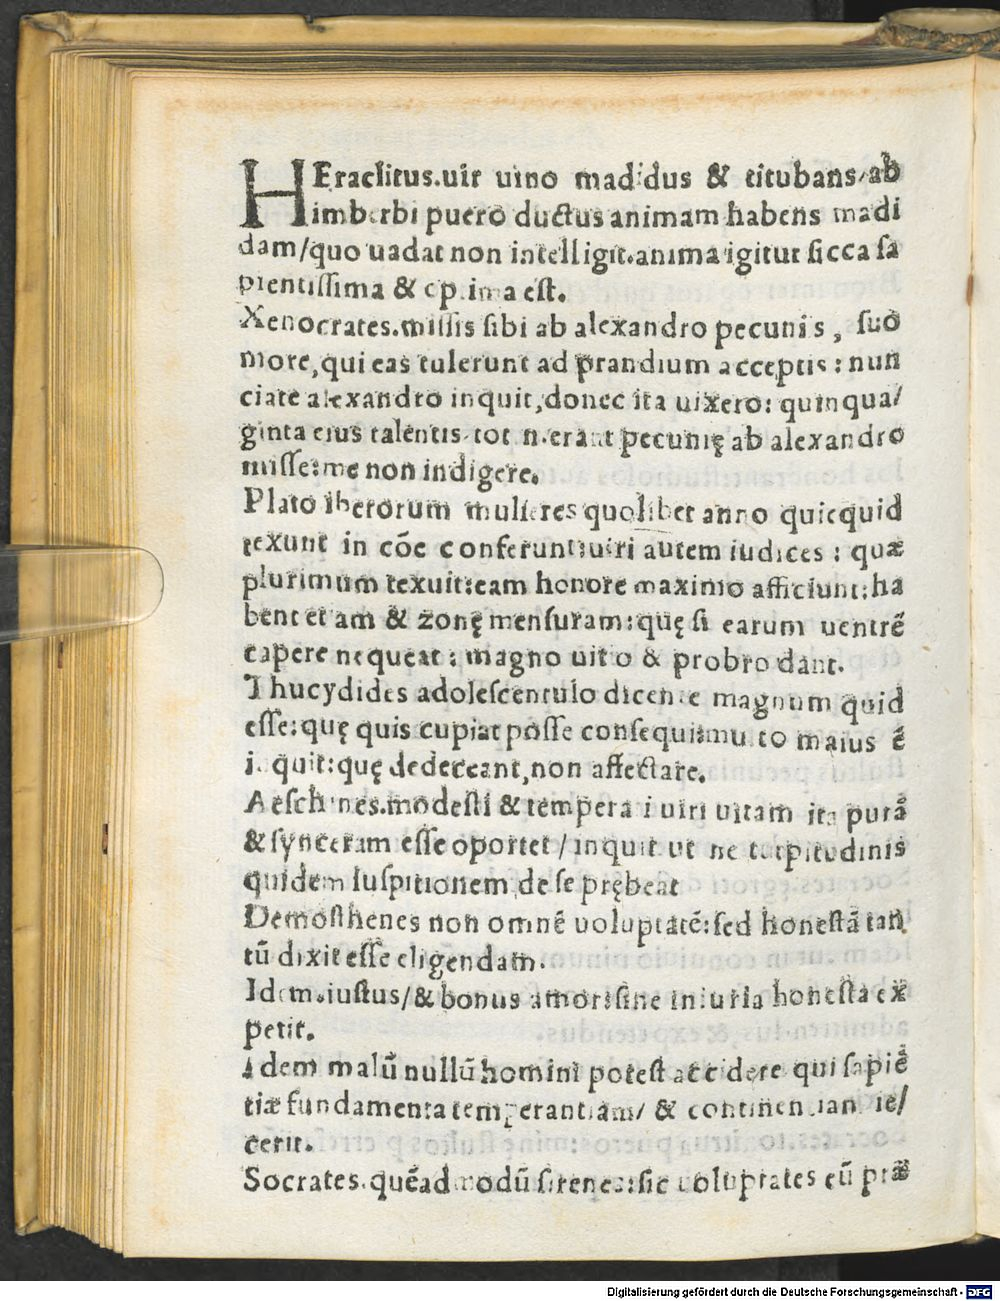 HEraclitus.uir uino madidus & titubans/ab
imberbi puero ductus animam habens madi
dam/quo uadat non intelligit.anima igitur sicca sa
pientissima & optima est.
Xenocrates.missis sibi ab alexandro pecuniis, suo
more,qui eas tulerunt ad prandium acceptis: nun
ciate alexandro inquit,donec ita uixero: quinqua/
ginta eius talentis tot n.erant pecunię ab alexandro
misse:me non indigere.
Plato iberorum mulieres quolibet anno quicquid
texunt in cōe conferunt:uiri autem iudices: quæ
plurimum texuit:eam honore maximo afficiunt:ha
bent etiam & zonę mensuram:quę si earum uentrē
capere nequeat: magno uitio & probro dant.
Thucydides adolescentulo dicente magnum quid
esse:quę quis cupiat posse consequi:multo maius ē
inquit:quę dedeceant,non affectare.
Aeschines.modesti & temperati uiri uitam ita purā
& synceram esse oportet/inquit ut ne turpitudinis
quidem suspitionem de se prębeat
Demosthenes non omnē uoluptatē:sed honestā tan
tū dixit esse eligendam.
Idem.iustus/& bonus amor:sine iniuria honesta ex
petit.
Idem malū nullū homini potest accidere qui sapiē
tiæ fundamenta temperantiam/ & continentiam ie/
cerit.
Socrates.quēadmodū sirenes:sic uoluptates eū præ
Digitalisierung gefördert durch die Deutsche Forschungsgemeinschaft - DFG